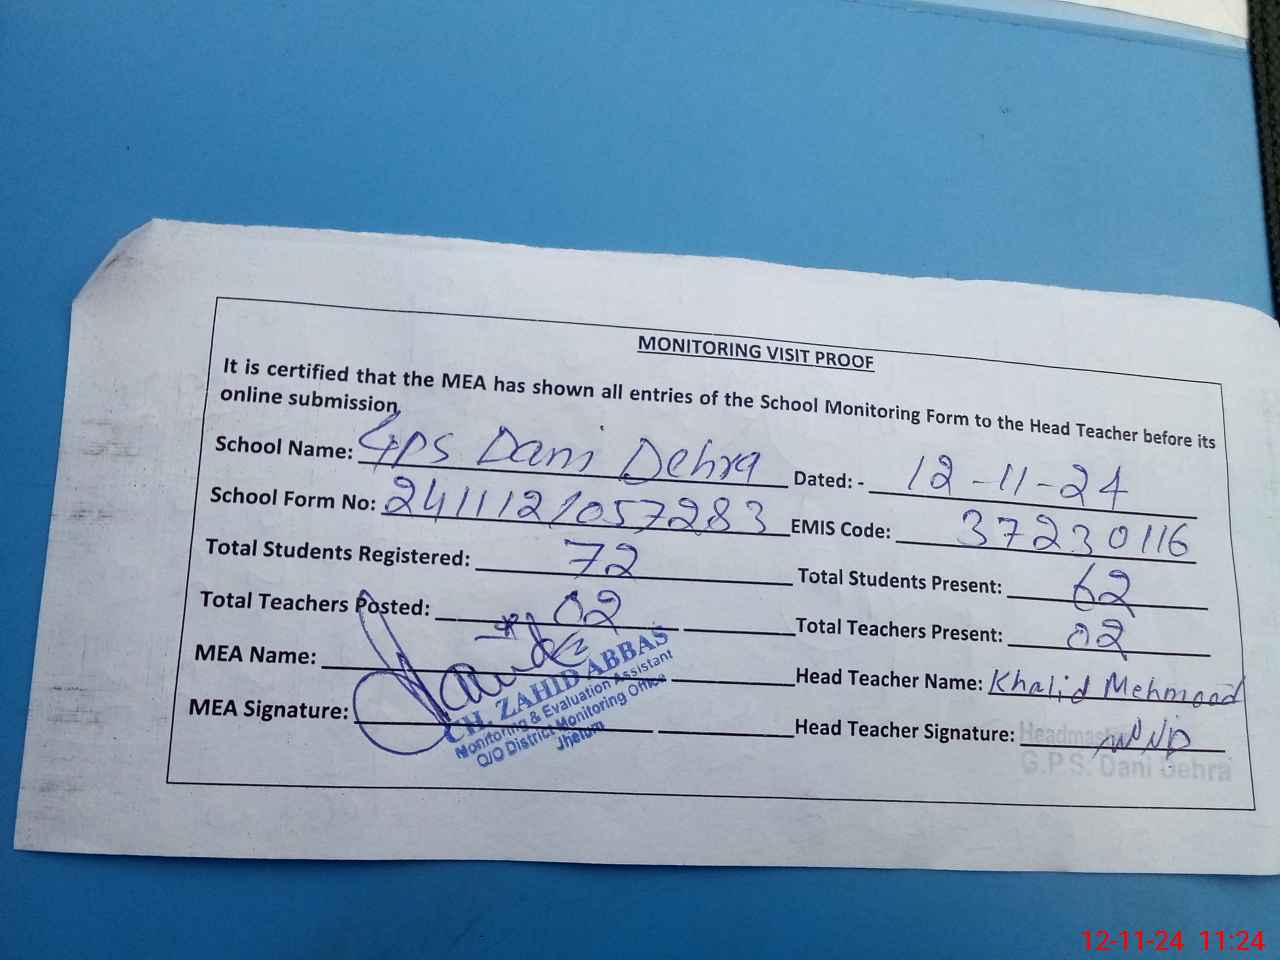 MONITORING VISIT PROOF
It is certified that the MEA has shown all entries of the School Monitoring Form to the Head Teacher before its
online submission
School Name: GPS Dani Dehra Dated: - 12-11-24
School Form No: 2411121057283 EMIS Code: 37230116
Total Students Registered: 72 Total Students Present: 62
Total Teachers Posted: 02 Total Teachers Present: 02
MEA Name: Head Teacher Name: Khalid Mehmood
MEA Signature: Head Teacher Signature:
CH. ZAHID ABBAS
Monitoring & Evaluation Assistant
O/O District Monitoring Office
Jhelum
Headmaster
G.P.S. Dani Dehra
12-11-24 11:24